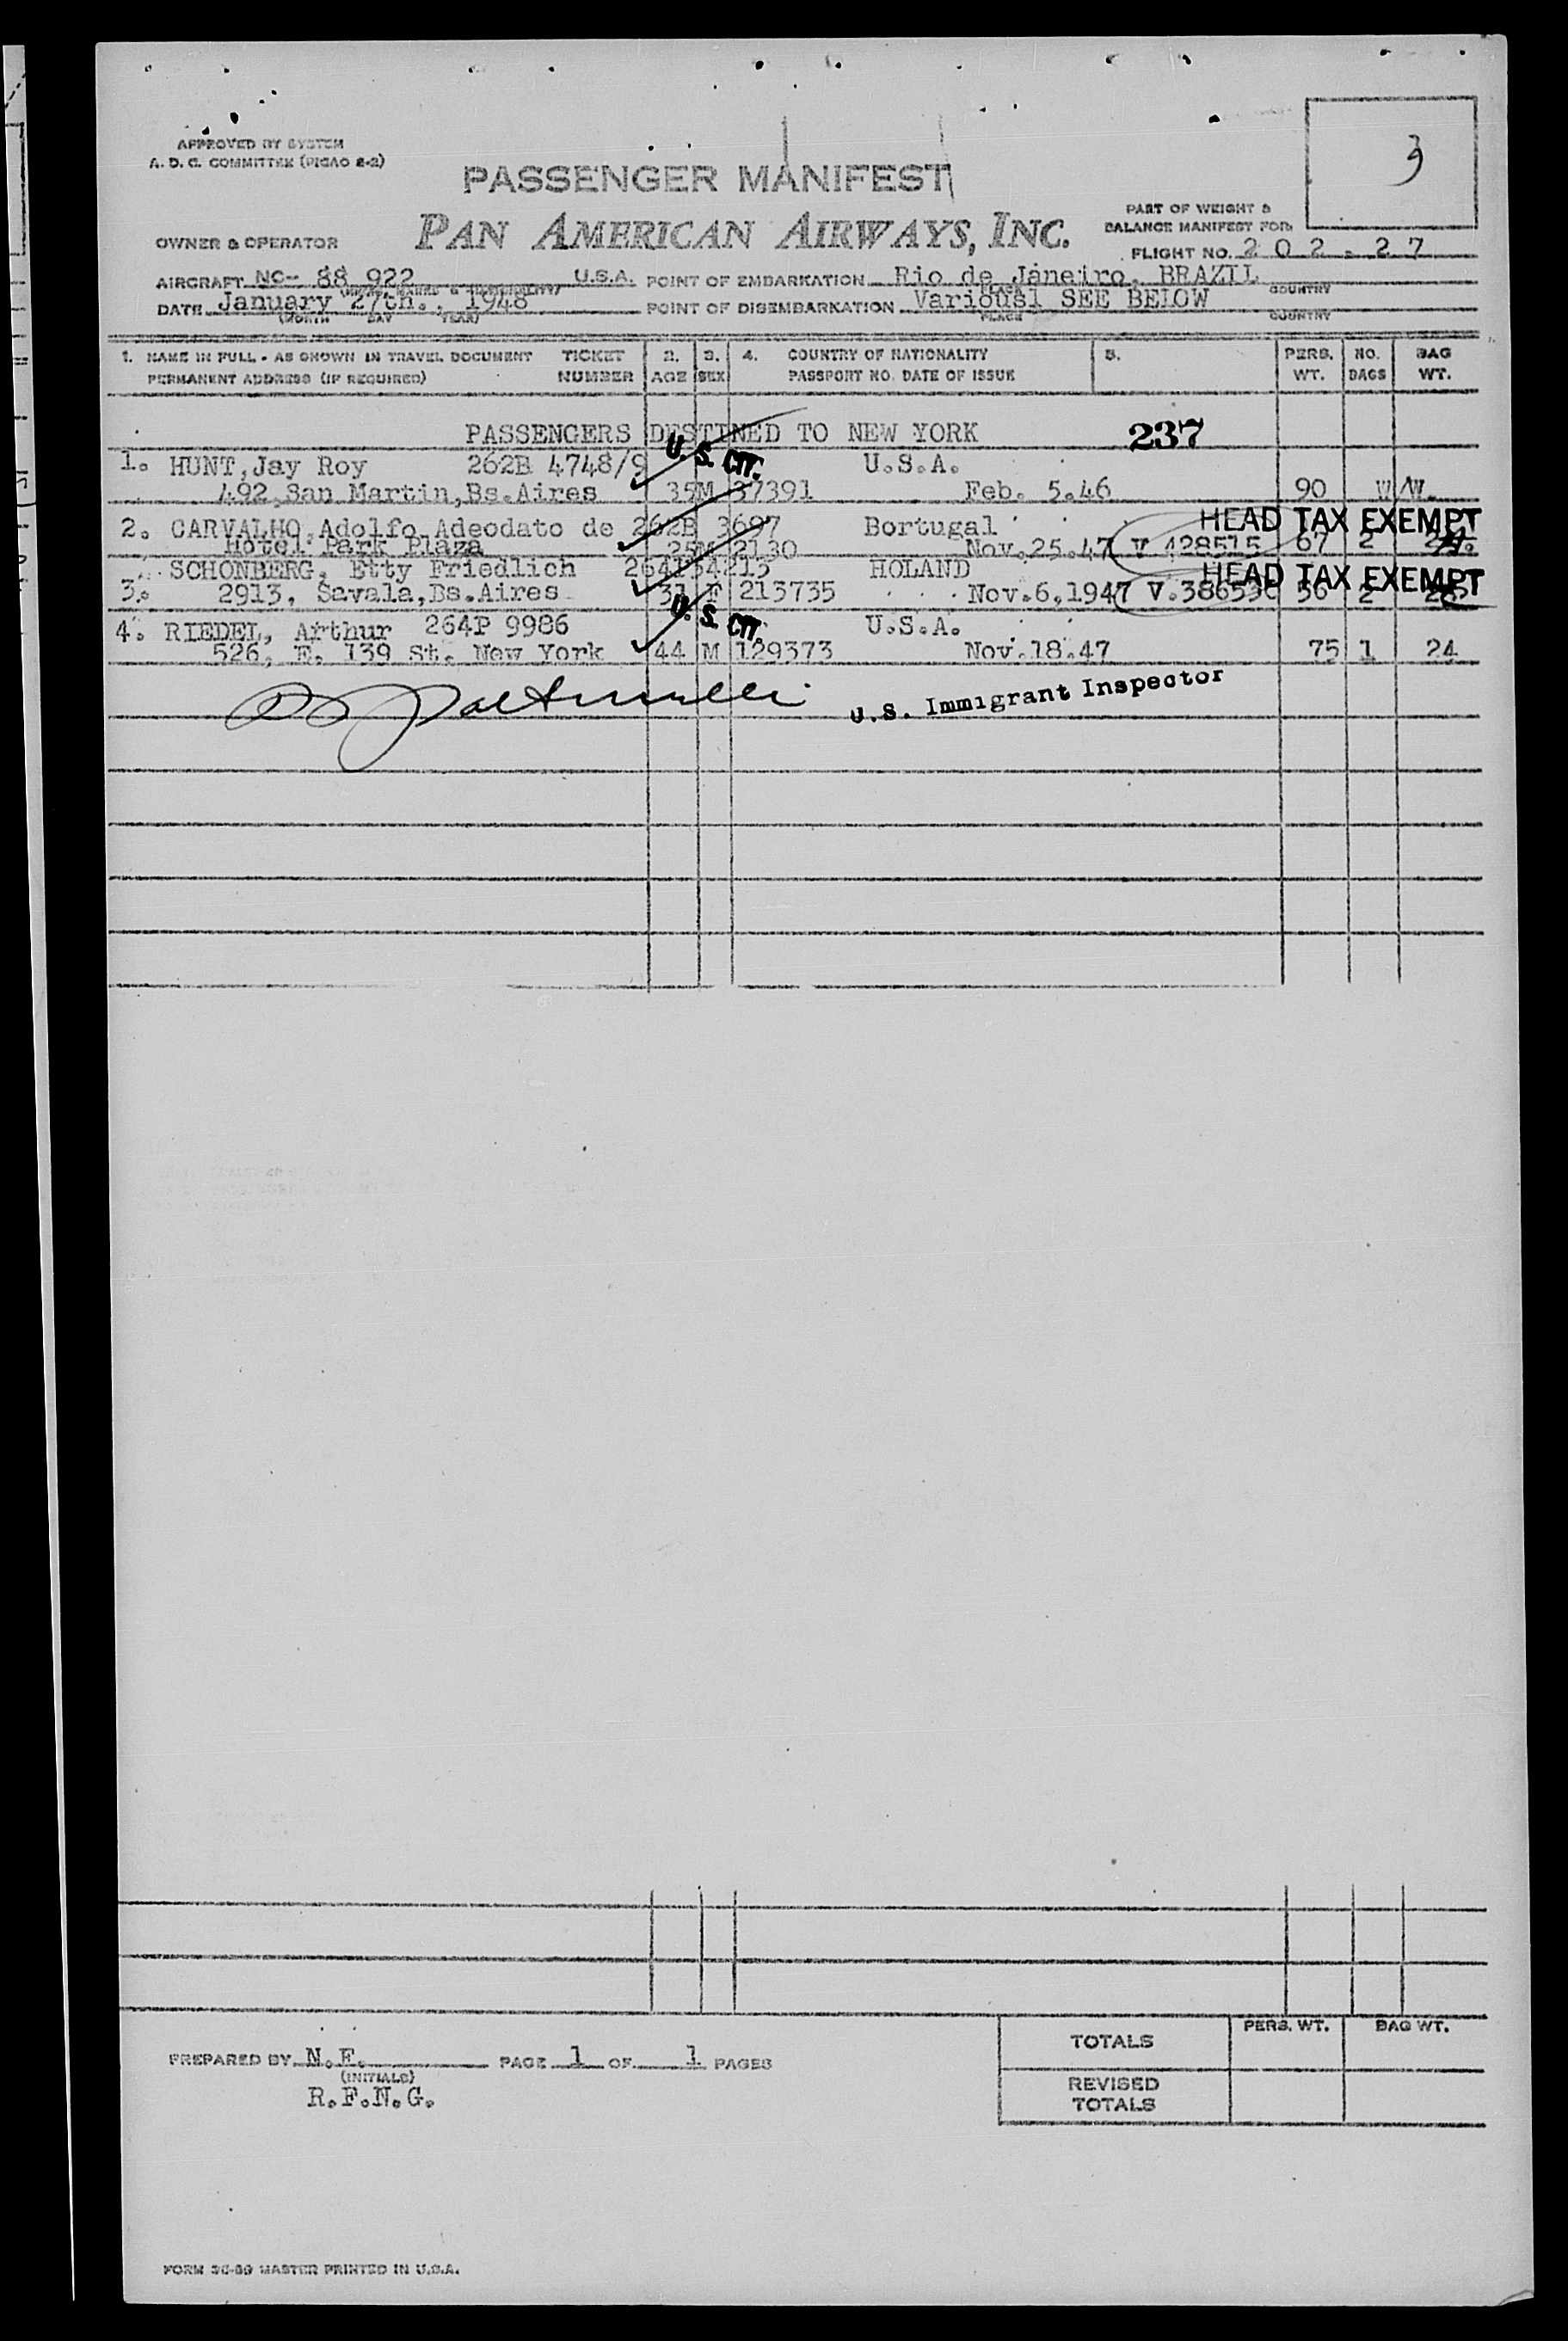 3
APPROVED BY SYSTEM
A. D. C. COMMITTEE (PICAO 2-2)
PASSENGER MANIFEST
PAN AMERICAN AIRWAYS, INC.
PART OF WEIGHT &
BALANCE MANIFEST FOR
OWNER & OPERATOR
FLIGHT NO. 2 0 2 - 2 7
AIRCRAFT NC- 88 922 U.S.A. POINT OF EMBARKATION Rio de Janeiro, BRAZIL
PLACE COUNTRY
DATE January 27th., 1948 POINT OF DISEMBARKATION Variousl SEE BELOW
(MONTH DAY YEAR) PLACE COUNTRY
1. NAME IN FULL - AS SHOWN IN TRAVEL DOCUMENT TICKET 2. 3. 4. COUNTRY OF NATIONALITY 5. PERS. NO. BAG
PERMANENT ADDRESS (IF REQUIRED) NUMBER AGE SEX PASSPORT NO. DATE OF ISSUE WT. BAGS WT.
PASSENGERS DESTINED TO NEW YORK 237
1. HUNT,Jay Roy 262B 4748/9 U. S. CIT. U.S.A.
492,San Martin,Bs.Aires 35 M 37391 Feb. 5.46 90 W/W.
2. CARVALHO,Adolfo Adeodato de 262B 3697 Bortugal HEAD TAX EXEMPT
Hotel Park Plaza 25 M 2130 Nov.25.47 V 428515 67 2
SCHONBERG, Etty Friedlich 264P54215 HOLAND HEAD TAX EXEMPT
3. 2913, Savala,Bs.Aires 31 F 213735 Nov.6,1947 V.386536 56 2
4. RIEDEL, Arthur 264P 9986 U. S. CIT. U.S.A.
526, E. 139 St. New York 44 M 129373 Nov.18.47 75 1 24
U.S. Immigrant Inspector
PREPARED BY N.F. PAGE 1 OF 1 PAGES
(INITIALS)
R.F.N.G.
PERS. WT. BAG WT.
TOTALS
REVISED
TOTALS
FORM 36-89 MASTER PRINTED IN U.S.A.